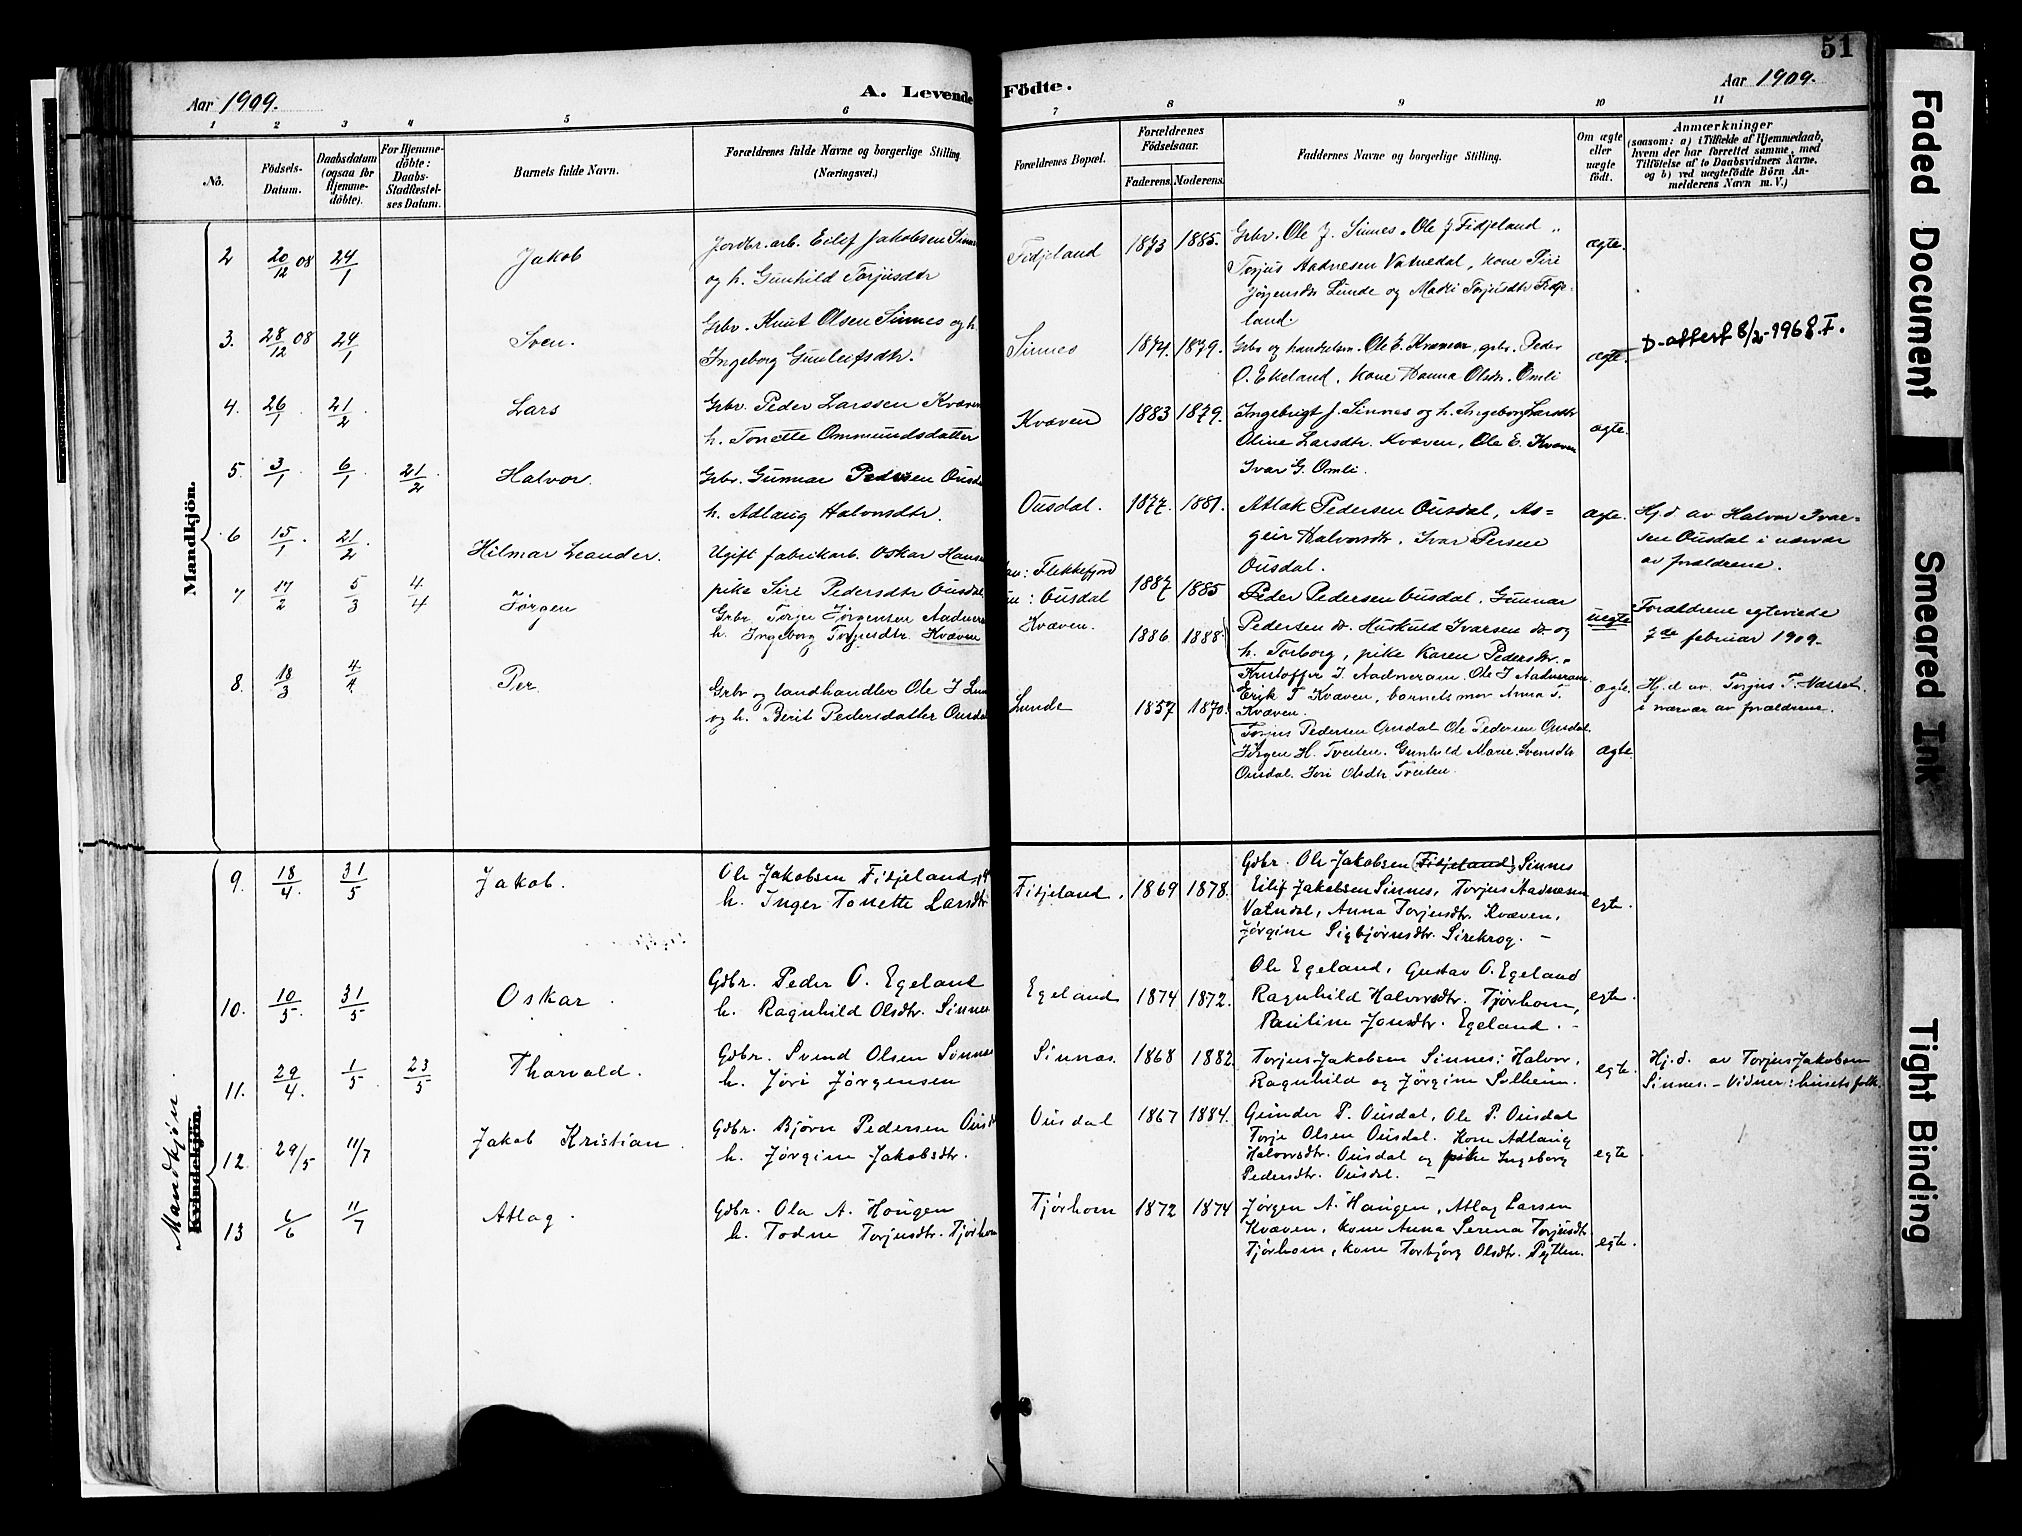 51
Aar 1909.
A. Levende Födte.
Aar 1909.
1 2 3 4 5 6 7 8 9 10 11
No.
Födsels-Datum.
Daabsdatum (ogsaa for Hjemme-döbte).
For Hjemme-döbte: Daabs-Stadfæstel-ses Datum.
Barnets fulde Navn.
Forældrenes fulde Navne og borgerlige Stilling (Næringsvei.)
Forældrenes Bopæl.
Forældrenes Födselsaar.
Faderens. Moderens.
Faddernes Navne og borgerlige Stilling.
Om ægte eller uægte födt.
Anmærkninger
(saasom: a) i Tilfælde af Hjemmedaab,
hvem der har forrettet samme, med
Tilföielse af to Daabsvidners Navne.
og b) ved uægtefödte Börn An-
melderens Navn m. V.)
Mandkjön.
2 20/12 08 24/1 Jakob
Jordbr. arb. Eilef Jakobsen Sinnes
og h. Gunhild Torjusdtr
Fidjeland 1873 1885.
Grbr. Ole J. Sinnes. Ole J Fidjeland
Torjus Aadnesen Vatnedal, kone Siri
Jørgensdtr Lunde og Malli Torjusdtr Fidje-
land.
ægte.
3. 28/12 08 24/1 Sven.
Grbr. Knut Olsen Sinnes og h.
Ingeborg Gunleifsdtr.
Sinnes 1874. 1879.
Grbr og handelsm. Ole E. Kvæven, grbr. Peder
O. Ekeland, kone Hanna Olsdtr. Omli
ægte.
D-attest 8/2-1968
4. 26/1 21/2 Lars
Grbr. Peder Larssen Kvæven
h. Tonette Ommundsdatter
Kvæven 1883 1879.
Ingebrigt J. Sinnes og h. Ingeborg Larsdtr
Oline Larsdtr. Kvæven, Ole E. Kvæven
Ivar G. Omli.
ægte.
5. 3/1 6/1 21/2 Halvor.
Grbr. Gunnar Pedersen Ousdal
h. Adlaug Halvorsdtr.
Ousdal. 1877. 1881.
Atlak Pedersen Ousdal, As-
geir Halvorsdtr, Ivar Persen
Ousdal.
ægte.
Hj.d. av Halvor Ivar-
sen Ousdal i nærvær
av forældrene.
6 15/1 21/2 Hilmar Leander.
Ugift fabrikarb. Oskar Hansen
pike Siri Pedersdtr Ousdal
Flekkefjord
: Ousdal
1887 1885
Peder Pedersen Ousdal. Gunnar
Pedersen do. Huskuld Ivarsen do og
h. Torborg, pike Karen Pedersdtr.
uegte
Forældrene egteviede
7de februar 1909.
7 17/2 5/3 4/4 Jørgen
Grbr Torger Jørgensen Aadneram
h. Ingeborg Torjusdtr. Kvæven
Kvæven. 1886 1888
Kristoffer I. Aadneram. Ole I Aadneram
Erik T Kvæven, barnets mor Anna T.
Kvæven.
ægte.
Hj.d av. Torjus T. Nasset.
i nærvær av forældrene.
8. 18/3 4/4 Per
Grbr og landhandler Ole J Lunde
og h. Berit Pedersdatter Ousdal
Lunde 1857 1870.
Torjus Pedersen Ousdal Ole Pedersen Ousdal.
Jørgen H. Tveiten. Gunhild Marie Svensdtr
Ousdal. Jori Olsdtr Tveiten.
ægte.
Mandkjön
Kvindekjön.
9. 18/4. 31/5 Jakob.
Ole Jakobsen Fidjeland og
h. Inger Tonette Larsdtr
Fidjeland, 1869 1878.
Gdbr. Ole Jakobsen (Fidjeland) Sinnes
Eilif Jakobsen Sinnes, Torjus Aadnesen
Vatndal, Anna Torjusdtr. Kvæven,
Jørgine Sigbjørnsdtr. Sirekrog. –
egte.
10. 10/5. 31/5 Oskar.
Gdbr. Peder O. Egeland
h. Ragnhild Olsdtr. Sinnes
Egeland 1874 1872.
Ole Egeland, Gustav O. Egeland
Ragnhild Halvorsdtr. Tjørhom,
Pauline Jonsdtr. Egeland. –
egte.
11. 29/4. 1/5 23/5 Thorvald.
Gdbr. Svend Olsen Sinnes
h. Jori Jørgensen
Sinnes. 1868 1882
Torjus Jakobsen Sinnes: Halvor,
Ragnhild og Jørgine Solheim.
egte.
Hj.d. av Torjus Jakobsen
Sinnes. – Vidner: husets folk.
12. 29/5 11/7 Jakob Kristian.
Gdbr. Bjørn Pedersen Ousdal
h. Jørgine Jakobsdtr.
Ousdal 1867 1884.
Gunder P. Ousdal, Ole P. Ousdal
Torje Olsen Ousdal. Kone Adlaug
Halvorsdtr. Ousdal og pike Ingeborg
Pedersdtr. Ousdal. –
egte
13 6/6 11/7 Atlag.
Gdbr. Ola A. Haugen
h. Todne Torjusdtr. Tjørhom
Tjørhom 1872 1874
Jørgen A. Haugen, Atlag Larsen
Kvæven, kone Anna Serena Torjusdtr
Tjørhom, kone Torbjørg Olsdtr. Pytten.
egte.
Faded Document
Smeared Ink
Tight Binding